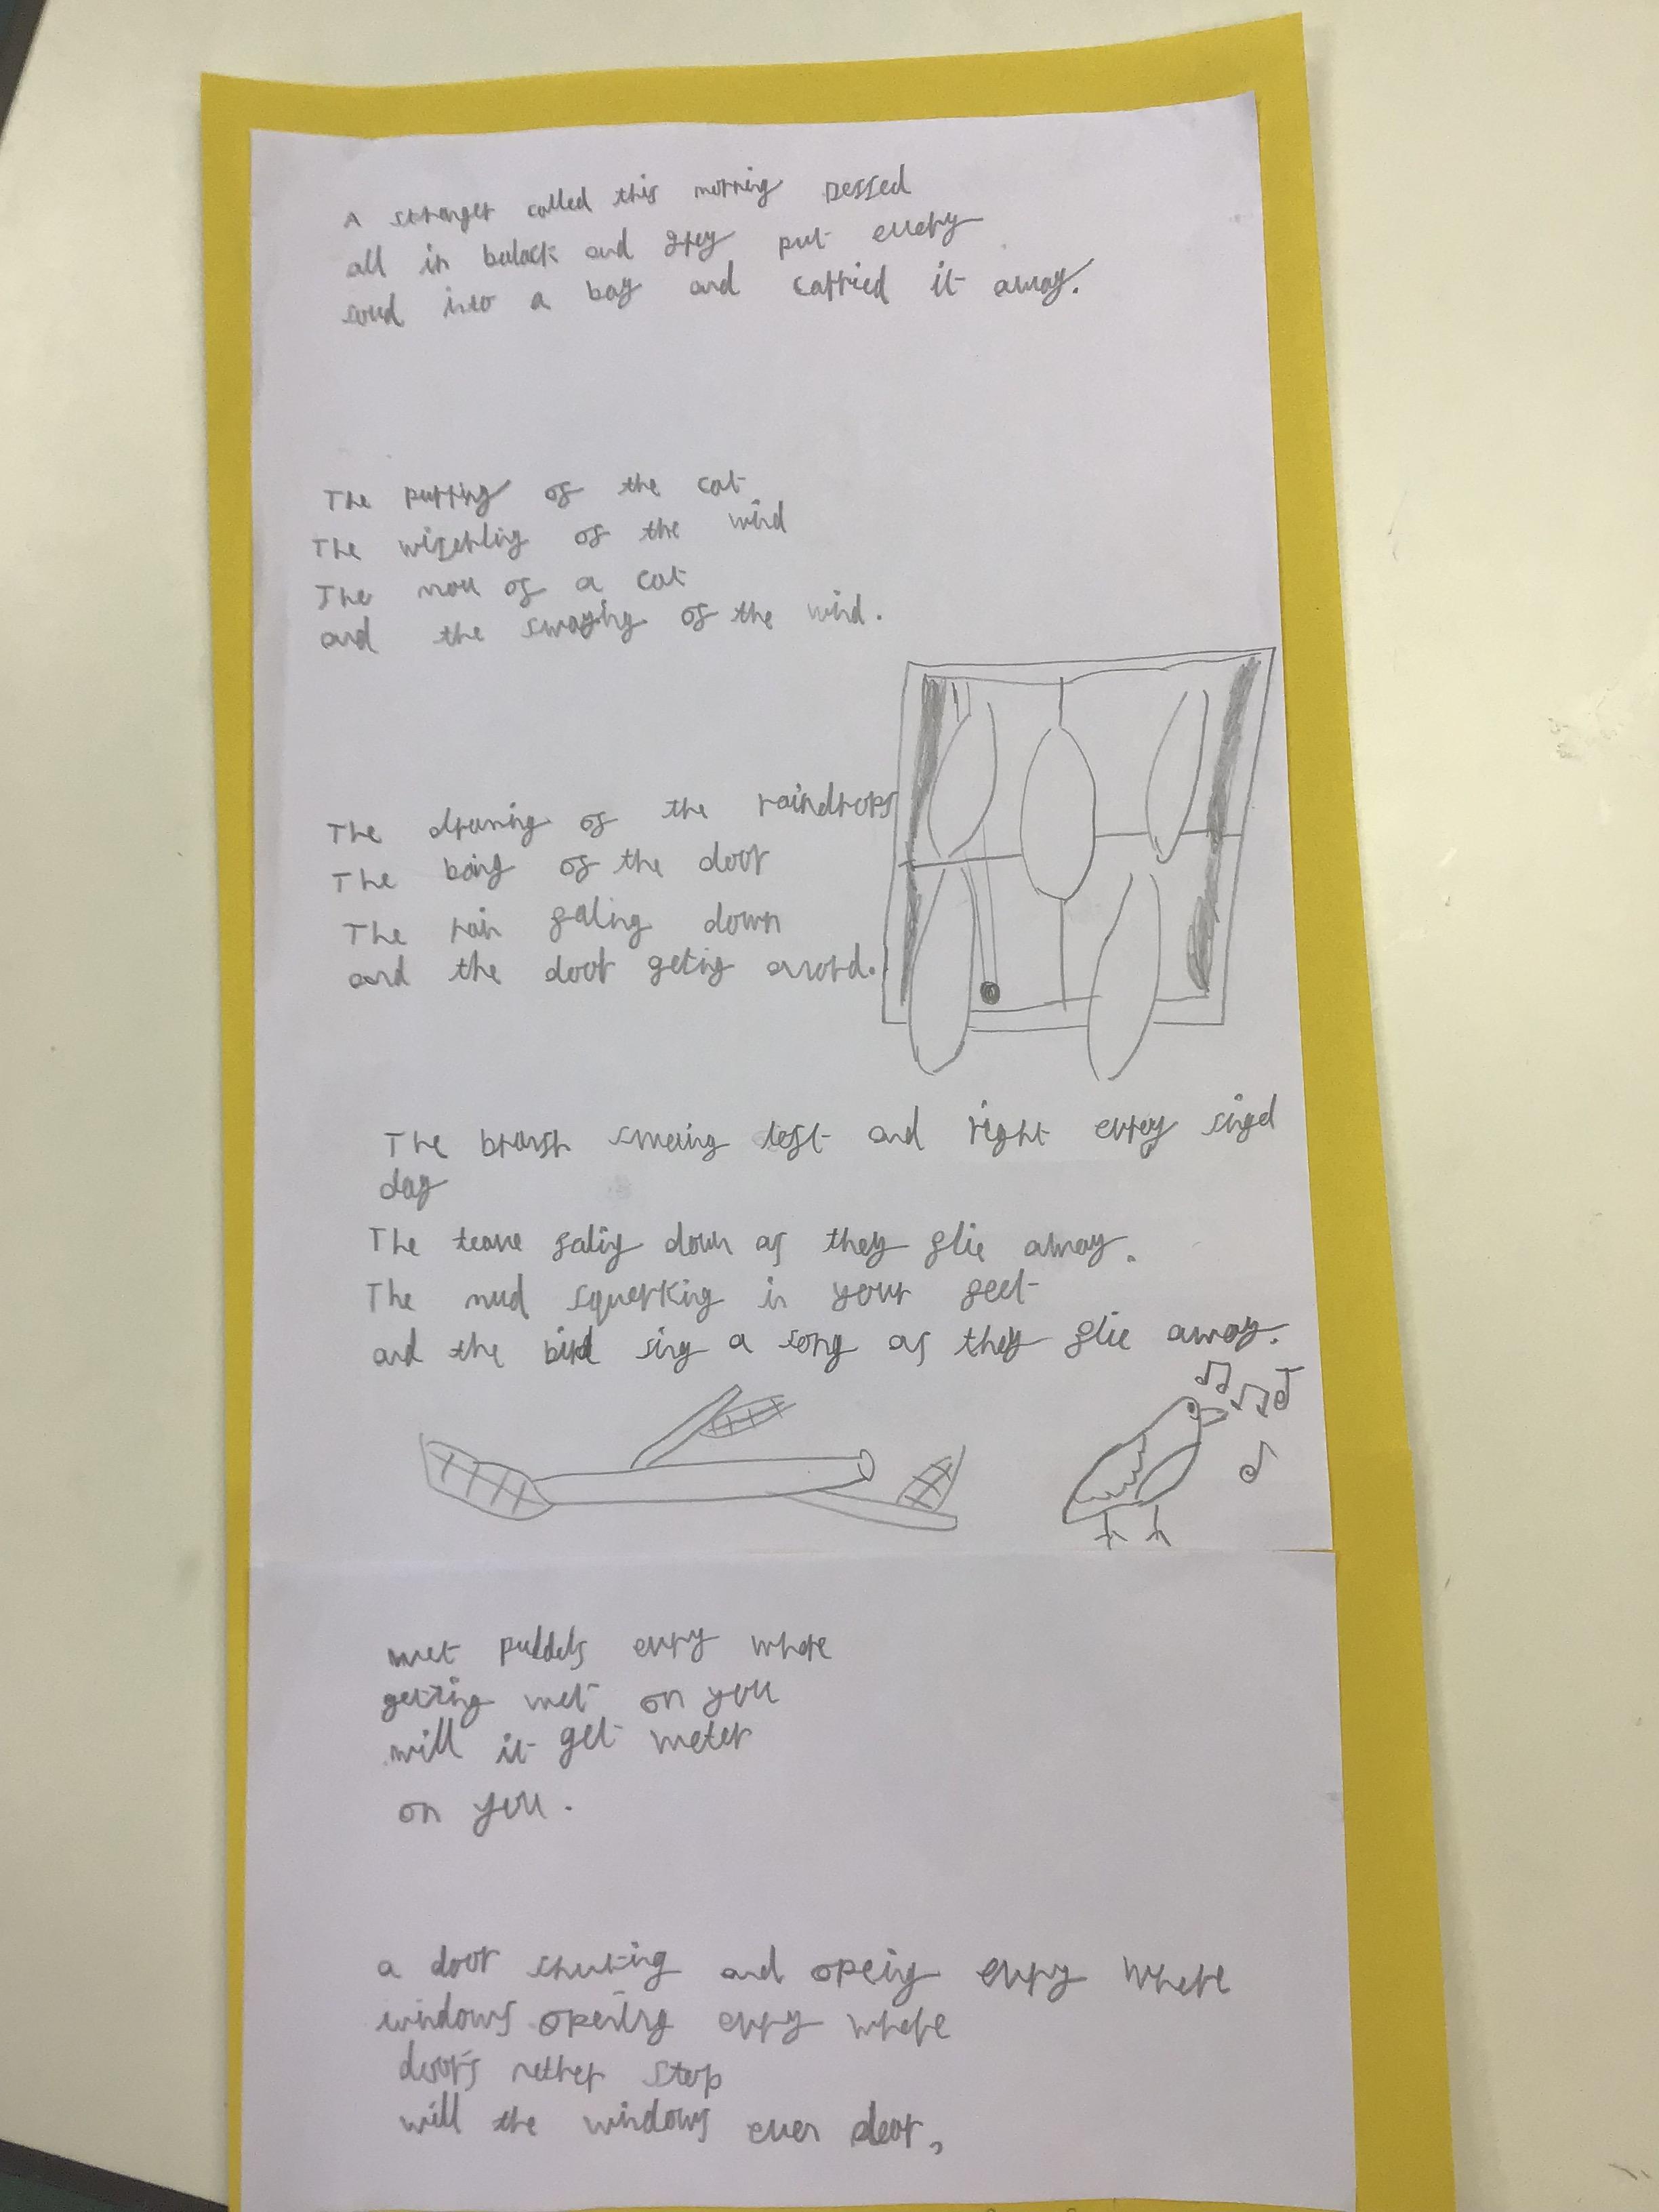 A stranger called this morning Dessed
all in balack and grey put every
soud into a bag and carried it away.
The purring of the cat
The wiserling of the wind
The mou of a cat
and the swaying of the wind.
The druming of the raindrops
The baing of the door
The rain faling down
and the door geting anord.
The brush smeing left and right evrey singel
day
The teave faliy down as they flie away.
The mud squerking in your feet
and the bird sing a song as they flie away.
wet puddels evry where
getting wet on you
will it get weter
on you.
a door shuting and opeing evry where
windows opening evry where
doors nether stop
will the windows ever